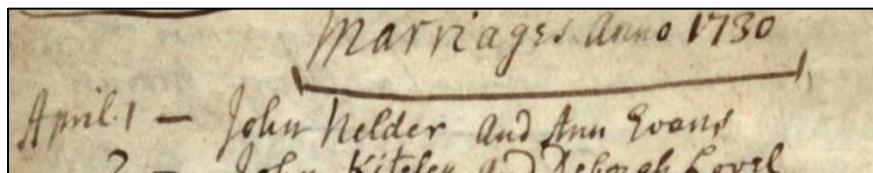 Marriages Anno 1730
April. 1 — John Helder and Ann Evans
2 — John Kiteley and Deborah Lovel